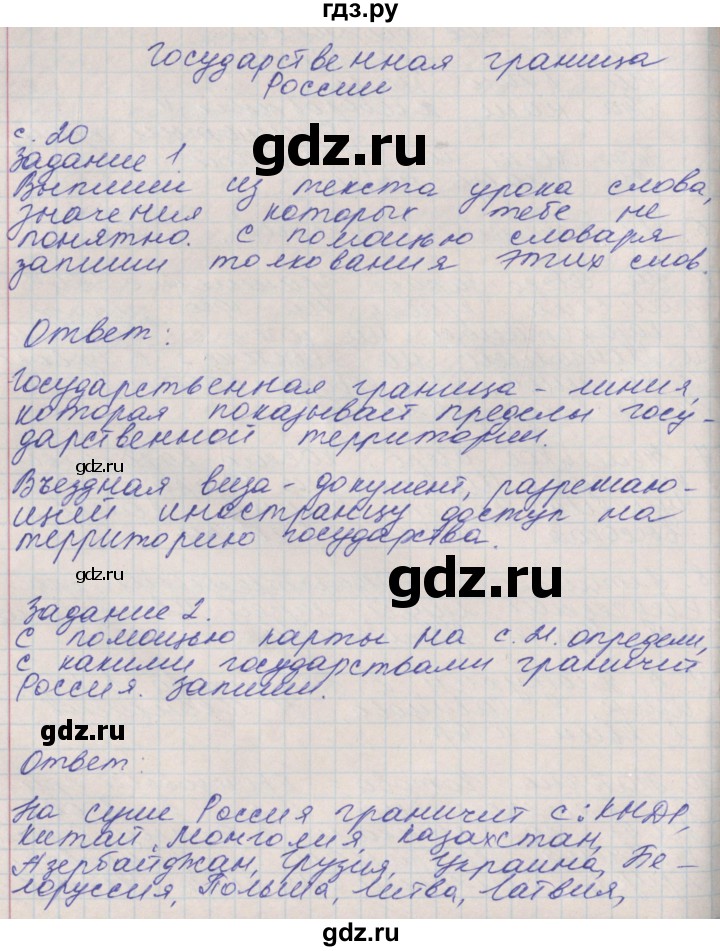 гдз.ру
Государственная граница
России
с. 20
Задание 1
Выпиши из текста урока слова,
значения которых тебе не
понятно. С помощью словаря
запиши толкования этих слов.
gdz.ru
Ответ:
gdz.ru
Государственная граница - линия,
которая показывает пределы госу-
дарственной территории.
gdz.ru
Въездная виза - документ, разрешаю-
щий иностранцу доступ на
территорию государства.
gdz.ru
gdz.ru
Задание 2.
С помощью карты на с. 21. определи,
с какими государствами граничит
Россия. Запиши.
gdz.ru
Ответ:
На суше Россия граничит с: КНДР,
Китай, Монголия, Казахстан,
Азербайджан, Грузия, Украина, Бе-
лоруссия, Польша, Литва, Латвия,
gdz.ru